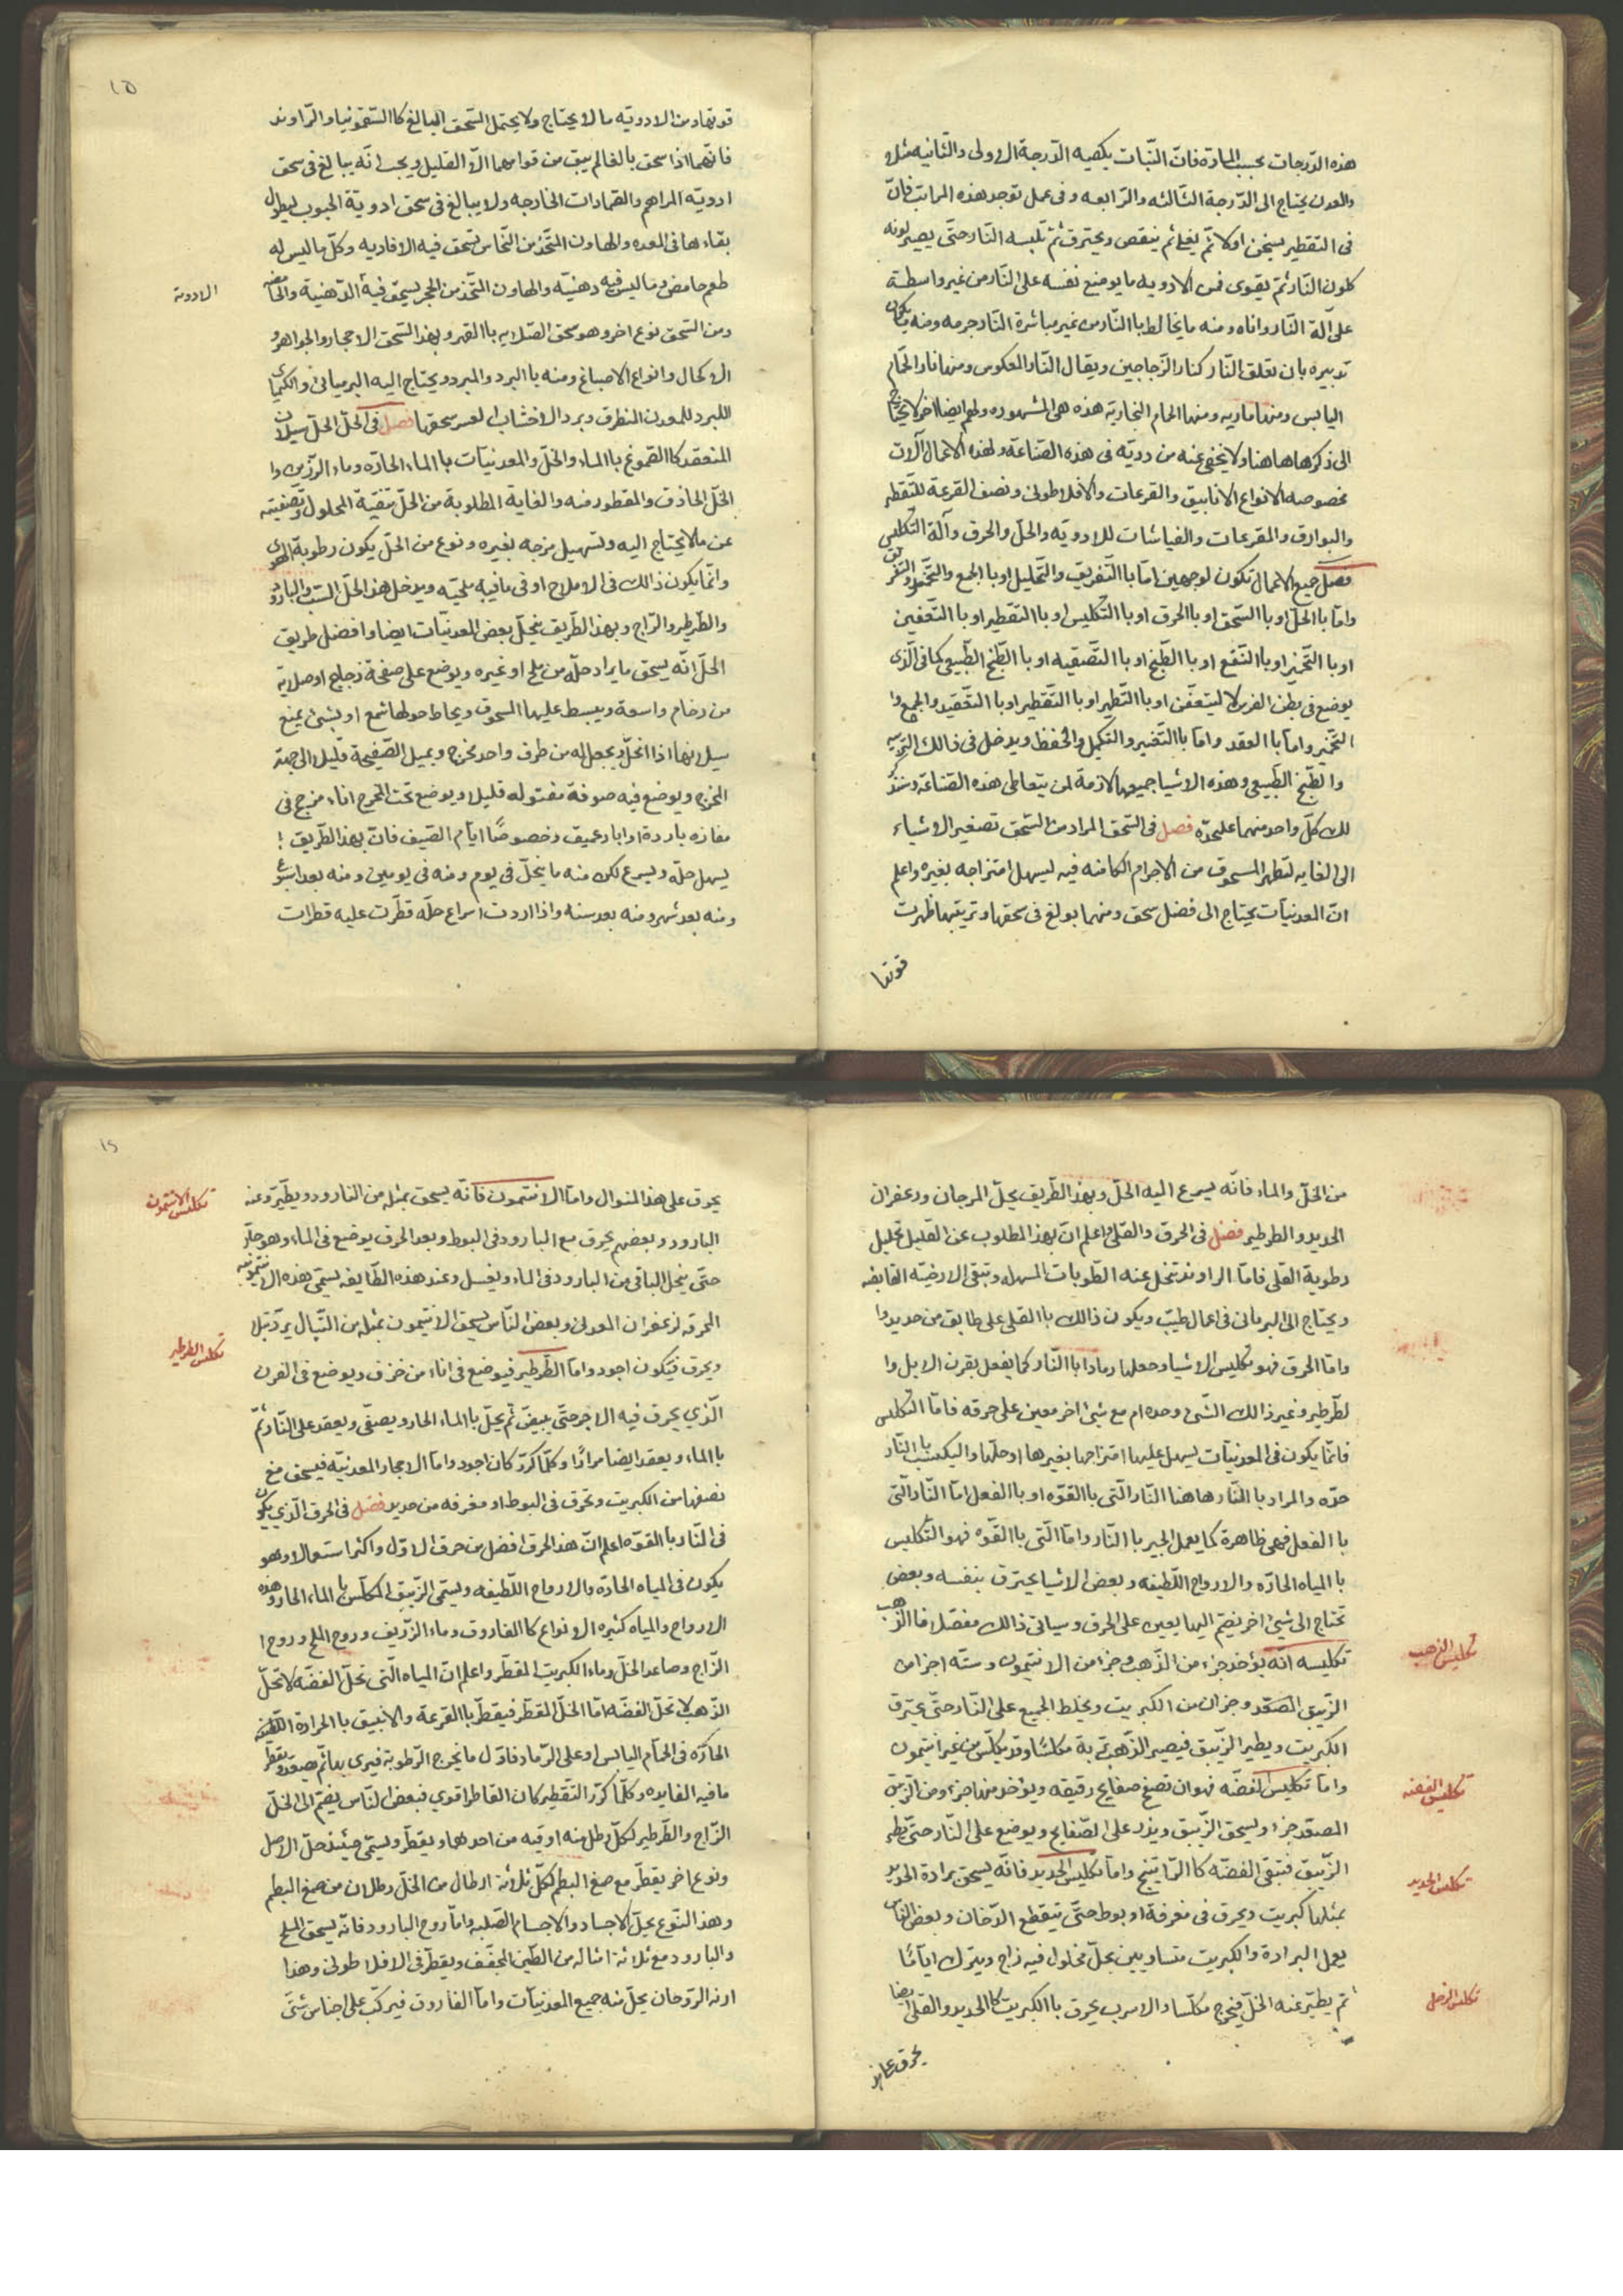 هذه الدّرجات بحسب المادّة فانّ النّبات يكفيه الدّرجة الاولى والثانيه مثلا
والمعدن يحتاج الى الدّرجة الثّالثه والرّابعه وفى عمل توجد هذه المراتب فانّ
فى التقطير يسخن اولا ثمّ يغلى ثم ينقص ويحترق ثمّ تلبسه النّار حتّى يصير لونه
كلون النّار ثمّ يقوى فمن الادويه ما يوضع نفسه على النّار من غير واسطة
على آلة النّار واناه ومنه ما يخالط باالنّار من غير مباشرة النّار جرمه ومنه ما يكون
تدبيره بان تعلق النّار كنار الزّجاجين ويقال النّار المعكوس ومنها نار الحمّام
اليابس ومنها ماريه ومنها الحمام البخارية هذه هى المشهوره ولهم ايضا اخر لا يحتاج
الى ذكرها هاهنا ولا يخفى عنه من درية فى هذه الصّناعة ولهذه الاعمال آلات
مخصوصه الانواع الانابيق والقرعات والافلاطونى ونصف القرعة للتقطير
والبوارق والمقرعات والفياشات للادويّه والحلّ والحرق وآلة التّكليس
فصل جميع الاعمال تكون لوجهين امّا باالتّفريق والتّحليل او باالجمع والتّجمّد والتفريق
وامّا باالحلّ او باالسّحق او باالحرق او باالتّكليس او باالتقطير او باالتّعفين
او باالتّخمير او باالنّقع او باالطّبخ او باالتّصفيه او باالطّبخ الطّبيعى كما فى الّذى
يوضع فى بطن الفرس لا ليتعفّن او باالتّطهير او باالتّقطير او باالتّعقيد والجمع وا
التّخمير وامّا باالعقد وامّا باالتّغيير والتّكميل والحفظ ويدخل فى ذالك التّربيه
والطّبخ الطّبيعى وهذه الاشيا جميعها لازمة لمن يتعاطى هذه الصّناعة وسنذكر
لك كلّ واحد منهما علىحدّه فصل فى السّحق المراد من السّحق تصغير الاشياء
الى الغايه لتطهير المسحوق من الاجرام الكامنه فيه ليسهل امتزاجه بغيره واعلم
انّ المعدنيّات يحتاج الى فضل سحق ومنهما بولغ فى سحقها وتربيتها ظهرت
قوتها
١٥
قوتها ومن الادويّه ما لا يحتاج ولا يحتمل السّحق البالغ كاالسّقمونيا والرّاوند
فانّهما اذا سحق بالغا لم يبق من قوامهما الاّ القليل ويجب انّه يبالغ فى سحق
ادويّه المراهم والضمادات الخارجه ولا يبالغ فى سحق ادوية الحبوب ليطول
بقاءها فى المعده والهاون المتّخذ من النّحاس تسحق فيه الافاديه وكلّ ما ليس له
طعم حامض وما ليس فيه دهنيّه والهاون المتّخذ من الحجر يسحق فيه الدّهنية والحامضه
الادوية
ومن السّحق نوع اخر وهو سحق الصّلايه باالقهر وبهذ السّحق الاحجار والجواهر و
الاكحال وانواع الاصباغ ومنه باالبرد والمبرد ويحتاج اليه البرمبانى والكيمياى
اللبرد للمعدن المنطرق وبرد الاخشاب لعسر سحقها فصل فى الحلّ الحلّ سيلان
المنعقد كاالصّموغ باالماء والخلّ والمعدنيّات باالماء الحادّه وماء الرّزين وا
الخلّ الحاذق والمقطور منه والغاية المطلوبة من الحلّ تنقية المحلول وتصفيته
عن ما لا يحتاج اليه وتسهيل مزجه بغيره ونوع من الحلّ يكون رطوبة الهوى
وانّما يكون ذالك فى الاملاح او فى ما فيه ملحيّه ويدخل هذ الحلّ الشّب والبارود
والطّرطير والزّاج وبهذ الطّريق ينحلّ بعض المعدنيّات ايضا وافضل طريق
الحلّ انّه يسحق ما يراد حلّه من ملح او غيره ويوضع على صفحة زجاج او صلاية
من رخام واسعة ويبسط عليها المسحوق ويحاط حولها شمع او بشئ يمنع
سيلانها اذا انحلّ ويجعل له من طرف واحد مخرج ويميل الصّفيحة قليلا الى جهة
المخرج ويوضع فيه صوفة مفتوله قليلا ويوضع تحت المخرج اناء مزجج فى
مغاره بارده او ابار عميق وخصوصًا ايّام الصّيف فانّ بهذ الطّريق
يسهل حلّه ويسرع لكن منه ما ينحلّ فى يوم ومنه فى يومين ومنه بعد اسبوع
ومنه بعد شهر ومنه بعد سنه واذا اردت اسراع حلّه قطّرت عليه قطرات
من الخلّ والماء فانّه يسرع اليه الحلّ وبهذ الطّريق يحلّ المرجان وزعفران
الحديد والطرطير فصل فى الحرق والقلى اعلم انّ بهذ المطلوب عن القليل تحليل
رطوبة القلى فامّا الراوند تنحل عنه الطّوبات المسهله وتبقى الارضيّه القابضه
ويحتاج الى البرمانى فى اعمال طيبّ ويكون ذالك باالقلى على طابق من حديد وا
وامّا الحرق فهو تكليس الاشيا وجعلها رمادا باالنّار كما يفعل بقرن الايل وا
لطّرطير وغير ذالك الشّئ وحده ام مع شئ اخر معين على حرقه فامّا التّكليس
فانّما يكون فى المعدنيّات يسهل عليها امتزاجها بغيرها او حلّها واليكسب باالنّار
حدّه والمراد باالنّار هاهنا النّار الّتى باالقوّه او باالفعل امّا النّار الّتى
باالفعل فهى ظاهرة كما يعمل الجير باالنّار وامّا الّتى باالقوّه فهو التّكليس
باالمياه الحادّه والارواح اللّطيفه وبعض الاشيا يحترق بنفسه وبعض
تحتاج الى شئ اخر يضمّ اليها يعين على الحرق وسياتى ذالك مفصّلا فاالذّهب
تكليس الذهب
تكليسه انّه يؤخذ جزاء من الذّهب وجزاء من الانتيمون وستّه اجزا من
الزّيبق المصعّد وجزان من الكبريت ويخلط الجميع على النّار حتّى يحترق
الكبريت ويطير الزّيبق فيصير الذّهب تربة مكلسًا وقد يكلّس من غير انتيمون
وامّا تكليس الفضّه فهو ان تصنع صفايح رقيقه ويؤخذ منها جزء ومن الزّيبق
تكليس الفضه
المصعّد جزء ويسحق الزّيبق ويذرّ على الصّفايح ويوضع على النّار حتّى يطير
الزّيبق فتبقى الفضّه كاالرّاتينج وامّا تكليس الحديد فانّه يسحق برادة الحديد
تكليس الحديد
بمثلها كبريت ويحرق فى مغرفة او بوط حتّى ينقطع الدّخان وبعض النّاس
يعمل البرادة والكبريت متساويين بخلّ محلول فيه زاج ويترك ايّامًا
ثم يطيّر عنه الخلّ فيخرج مكلّسا والاسرب يحرق باالكبريت كاالحديد والقلى ايضا
تكليس الزحل
يحرق على هذ
١٦
يحرق على هذ المنوال وامّا الانتيمون فانّه يسحق بمثله من البارود ويطيّر عنه
تكليس الانتيمون
البارود وبعضهم يحرق مع البارود فى البوط وبعد الحرق يوضع فى الماء وهو حار
حتّى ينحل الباقى من البارود فى الماء ويغسل وعند هذه الطّايفه يسمّى بهذه الانتيمونيه
المحرقه لزعفران المعدنى وبعض النّاس يسحق الانتيمون بمثله من
ويحرق فيكون اجود وامّا الطّرطير فيوضع فى اناء من خزف ويوضع فى الفرن
تكليس الطرطير
الّذي يحرق فيه الاجر حتّى يبيضّ ثمّ يحلّ باالماء الحار ويصفّى ويعقد على النّار ثمّ
باالماء ويعقد ايضا مرارًا وكلّما كرّر كان اجود وامّا الاحجار المعدنيّه فيسحق مع
نصفها من الكبريت وتحرق فى البوط او مغرفه من حديد فصل فى الحرق الّذي يكون
فى النّار باالقوّه اعلم انّ هذ الحرق افضل من حرق الاوّل واكثر استعمالا وهو
يكون فى المياه الحادّه والارواح اللّطيفه ويسمّى الزّيبق المكلّس باالماء الحار وهذه
الارواح والمياه كثيره الانواع كاالفاروق وماء الزّريف وروح الملح وروح ا
الزّاج وصاعد الخلّ وماء الكبريت المقطّر واعلم انّ المياه الّتى تحلّ الفضّه لا تحلّ
الذّهب لا تحلّ الفضّه امّا الخلّ المقطّر فيقطّر باالقرعة والانبيق باالحرارة اللّطيفه
الحارّه فى الحمّام اليابس او على الرّماد فاوّل ما يخرج الرّطوبة فيرى بها ثمّ يصعّد ويقطّر
ما فيه الفايده وكلّما كرّر التّقطير كان القاطر اقوي فبعض النّاس يضمّ الى الخلّ
الزّاج والطّرطير لكلّ رطل منه اوقيه من احدهما ويقطّر ويسمّى حينئذ خلّ الاصل
ونوع اخر يقطّر مع صمغ البطم لكلّ ثلاثة ارطال من الخلّ رطلان من صمغ البطم
وهذ النّوع يحلّ الاجساد والاجسام الصّلبه وامّا روح البارود فانّه يسحق الملح
والبارود مع ثلاثة امثاله من الطّين المجفّف ويقطّر فى الافلاطونى وهذا
الرّوحان يحلّ منه جميع المعدنيّات وامّا الفاروق فيركّب على اجناس شتّى